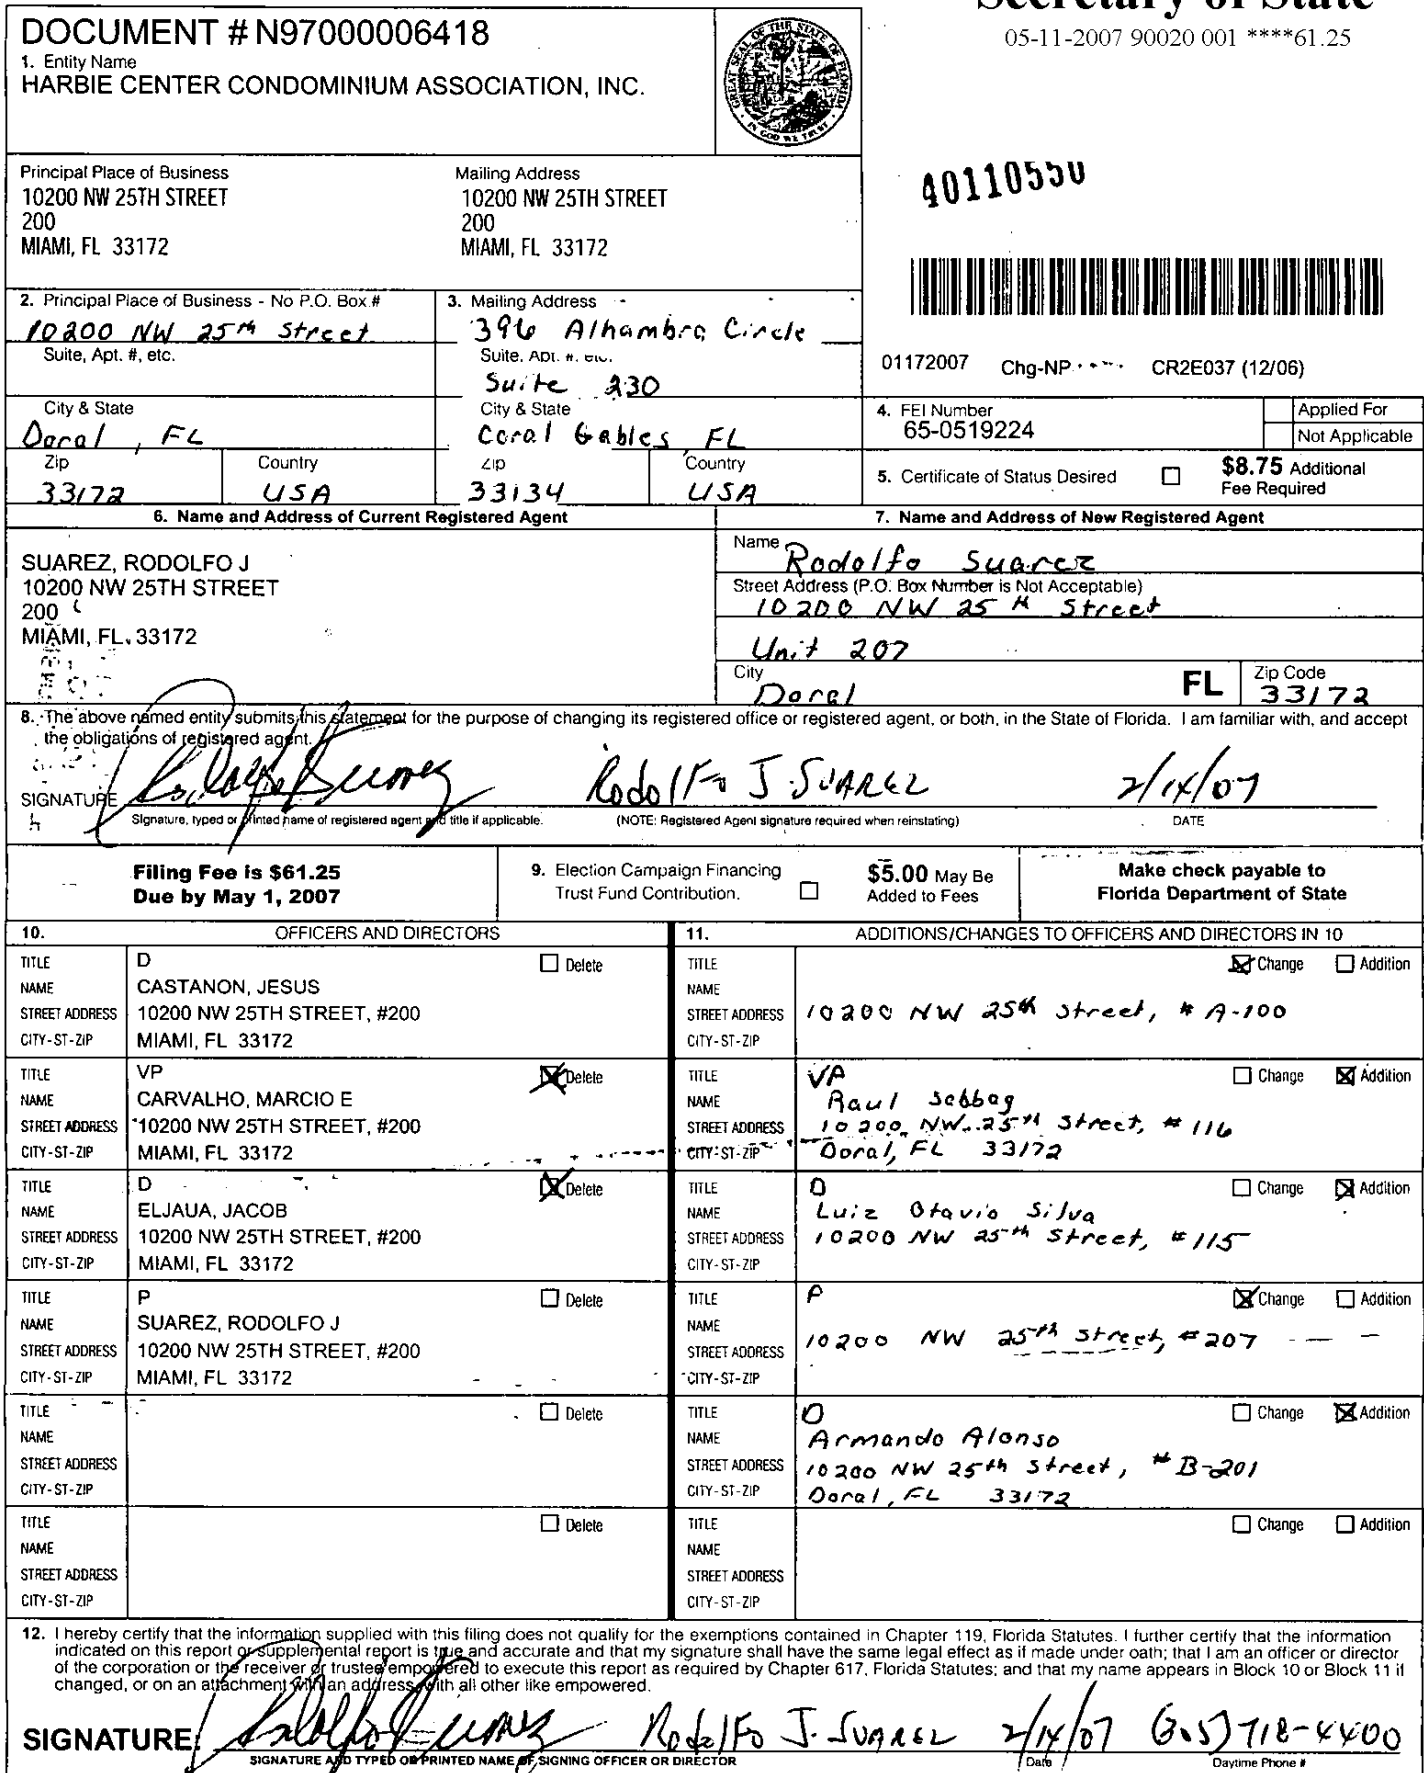 Secretary of State
05-11-2007 90020 001 ****61.25
DOCUMENT # N97000006418
1. Entity Name
HARBIE CENTER CONDOMINIUM ASSOCIATION, INC.
GREAT SEAL OF THE STATE OF FLORIDA
IN GOD WE TRUST
40110550
Principal Place of Business
10200 NW 25TH STREET
200
MIAMI, FL 33172
Mailing Address
10200 NW 25TH STREET
200
MIAMI, FL 33172
2. Principal Place of Business - No P.O. Box #
10200 NW 25th Street
Suite, Apt. #, etc.
City & State
Doral, FL
Zip
33172
Country
USA
3. Mailing Address
396 Alhambra Circle
Suite, Apt. #, etc.
Suite 230
City & State
Coral Gables, FL
Zip
33134
Country
USA
01172007 Chg-NP CR2E037 (12/06)
4. FEI Number
65-0519224
Applied For
Not Applicable
5. Certificate of Status Desired
$8.75 Additional
Fee Required
6. Name and Address of Current Registered Agent
SUAREZ, RODOLFO J
10200 NW 25TH STREET
200
MIAMI, FL 33172
7. Name and Address of New Registered Agent
Name
Rodolfo Suarez
Street Address (P.O. Box Number is Not Acceptable)
10200 NW 25th Street
Unit 207
City
Doral
FL
Zip Code
33172
8. The above named entity submits this statement for the purpose of changing its registered office or registered agent, or both, in the State of Florida. I am familiar with, and accept
the obligations of registered agent.
SIGNATURE Rodolfo Suarez Rodolfo J. SUAREZ 2/14/07
Signature, typed or printed name of registered agent and title if applicable. (NOTE: Registered Agent signature required when reinstating) DATE
Filing Fee is $61.25
Due by May 1, 2007
9. Election Campaign Financing
Trust Fund Contribution.
$5.00 May Be
Added to Fees
Make check payable to
Florida Department of State
10. OFFICERS AND DIRECTORS
11. ADDITIONS/CHANGES TO OFFICERS AND DIRECTORS IN 10
TITLE D Delete
NAME CASTANON, JESUS
STREET ADDRESS 10200 NW 25TH STREET, #200
CITY-ST-ZIP MIAMI, FL 33172
TITLE Change Addition
NAME
STREET ADDRESS 10200 NW 25th Street, # A-100
CITY-ST-ZIP
TITLE VP Delete
NAME CARVALHO, MARCIO E
STREET ADDRESS 10200 NW 25TH STREET, #200
CITY-ST-ZIP MIAMI, FL 33172
TITLE VP Change Addition
NAME Raul Sabbag
STREET ADDRESS 10200 NW 25th Street, # 116
CITY-ST-ZIP Doral, FL 33172
TITLE D Delete
NAME ELJAUA, JACOB
STREET ADDRESS 10200 NW 25TH STREET, #200
CITY-ST-ZIP MIAMI, FL 33172
TITLE D Change Addition
NAME Luiz Otavio Silva
STREET ADDRESS 10200 NW 25th Street, #115
CITY-ST-ZIP
TITLE P Delete
NAME SUAREZ, RODOLFO J
STREET ADDRESS 10200 NW 25TH STREET, #200
CITY-ST-ZIP MIAMI, FL 33172
TITLE P Change Addition
NAME
STREET ADDRESS 10200 NW 25th Street, #207
CITY-ST-ZIP
TITLE Delete
NAME
STREET ADDRESS
CITY-ST-ZIP
TITLE D Change Addition
NAME Armando Alonso
STREET ADDRESS 10200 NW 25th Street, # B-201
CITY-ST-ZIP Doral, FL 33172
TITLE Delete
NAME
STREET ADDRESS
CITY-ST-ZIP
TITLE Change Addition
NAME
STREET ADDRESS
CITY-ST-ZIP
12. I hereby certify that the information supplied with this filing does not qualify for the exemptions contained in Chapter 119, Florida Statutes. I further certify that the information
indicated on this report or supplemental report is true and accurate and that my signature shall have the same legal effect as if made under oath; that I am an officer or director
of the corporation or the receiver or trustee empowered to execute this report as required by Chapter 617, Florida Statutes; and that my name appears in Block 10 or Block 11 if
changed, or on an attachment with an address, with all other like empowered.
SIGNATURE: Rodolfo Suarez Rodolfo J. SUAREZ 2/14/07 (305) 718-4400
SIGNATURE AND TYPED OR PRINTED NAME OF SIGNING OFFICER OR DIRECTOR Date Daytime Phone #